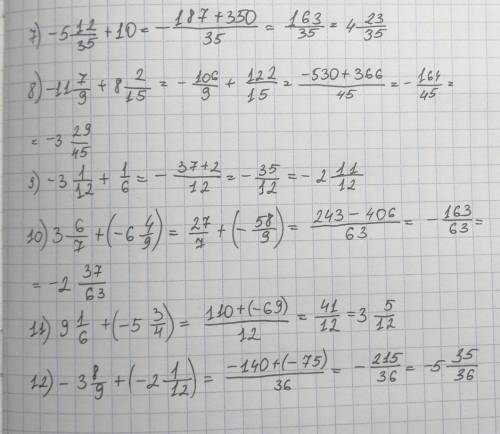 7) -5 12/35 + 10 = - 187+350/35 = 163/35 = 4 23/35
8) -11 7/9 + 8 2/15 = - 106/9 + 122/15 = -530+366/45 = - 164/45 =
= -3 29/45
9) -3 1/12 + 1/6 = - 37+2/12 = - 35/12 = - 2 11/12
10) 3 6/7 + (-6 4/9) = 27/7 + (- 58/9) = 243-406/63 = - 163/63 =
= -2 37/63
11) 9 1/6 + (-5 3/4) = 110+(-69)/12 = 41/12 = 3 5/12
12) - 3 8/9 + (-2 1/12) = -140+(-75)/36 = - 215/36 = -5 35/36